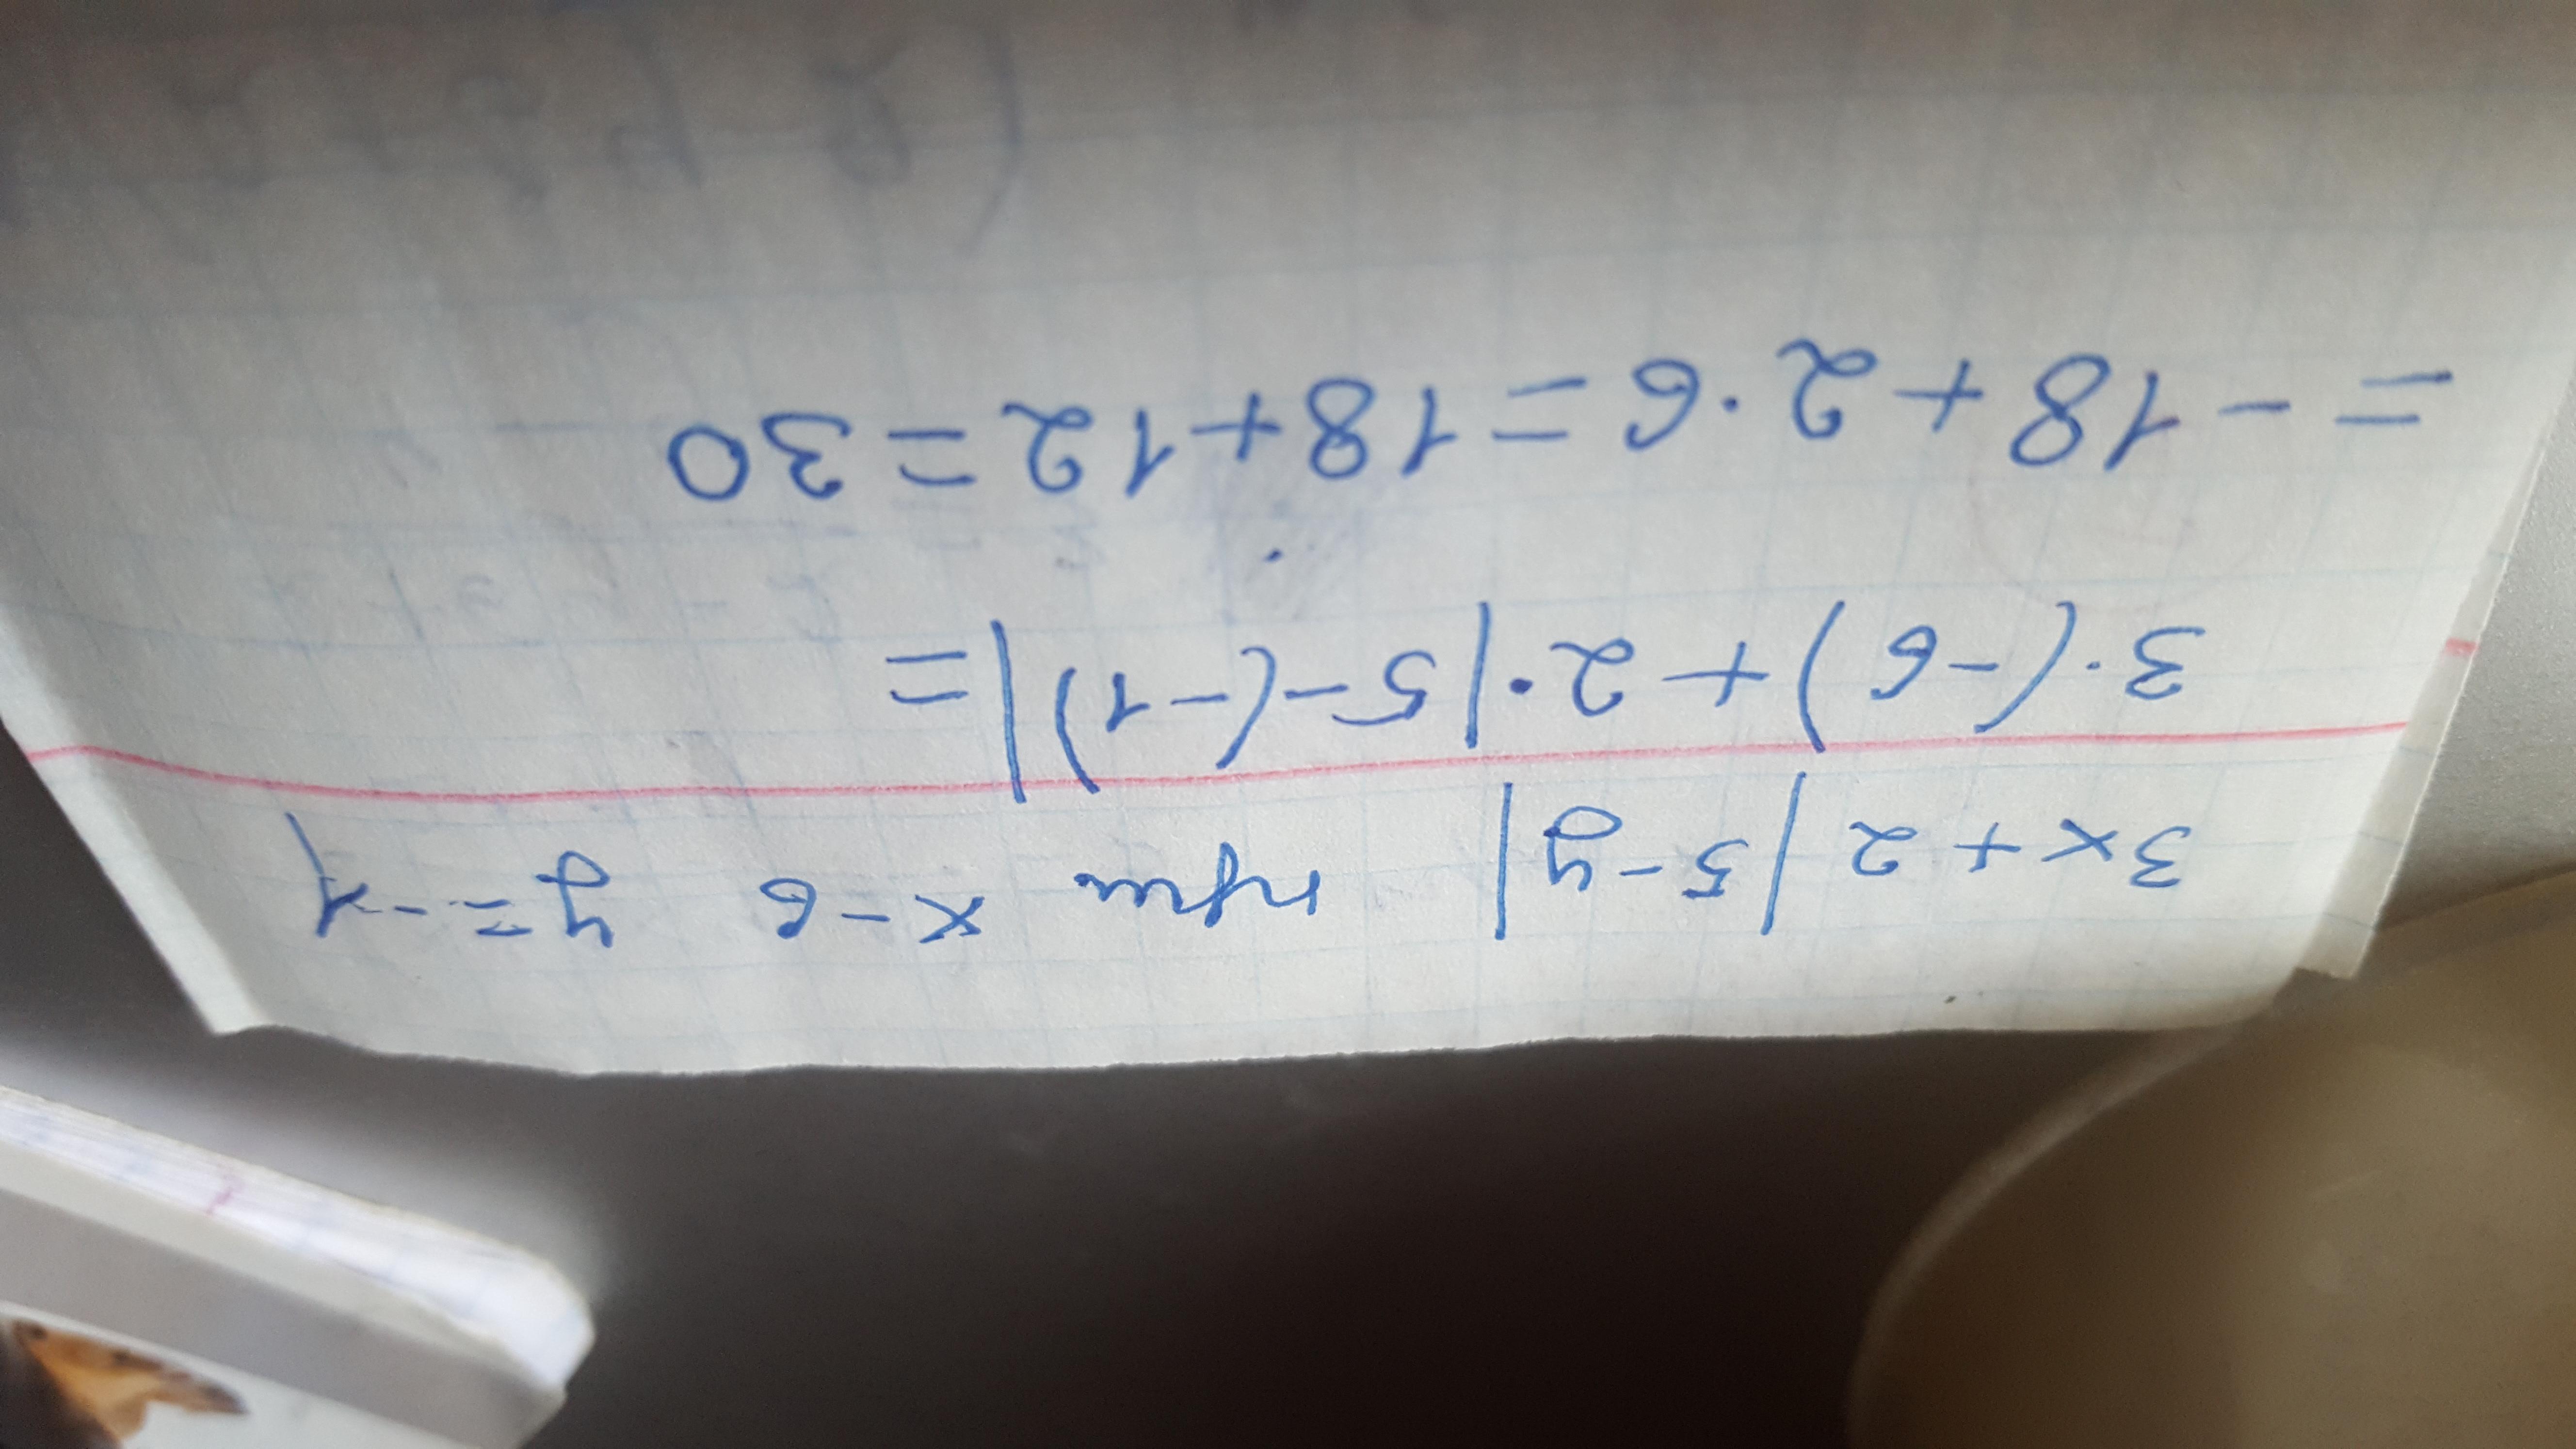 3x + 2 |5-y| при x-6 y=-1
3·(-6)+2·|5-(-1)|=
=-18+2·6=18+12=30